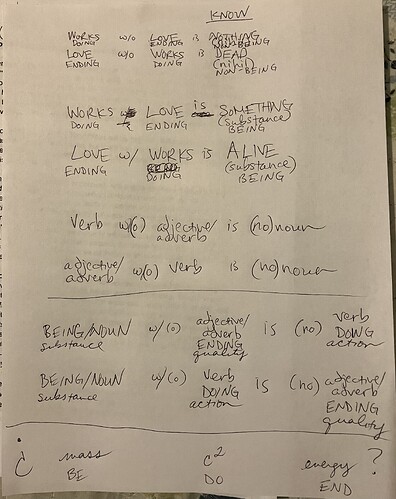 KNOW
WORKS w/o LOVE is NOTHING
DOING ENDING NON-BEING
LOVE w/o WORKS is DEAD
ENDING DOING (nihil)
NON-BEING
WORKS w/ LOVE is SOMETHING
DOING ENDING (substance)
BEING
LOVE w/ WORKS is ALIVE
ENDING DOING (substance)
BEING
verb w/(o) adjective/ is (no)noun
adverb
adjective/ w/(o) verb is (no)noun
adverb
BEING/NOUN w/(o) adjective/ is (no) verb
substance adverb DOING
ENDING action
quality
BEING/NOUN w/(o) verb is (no) adjective/
substance DOING adverb
action ENDING
quality
¿ mass c² energy ?
BE DO END